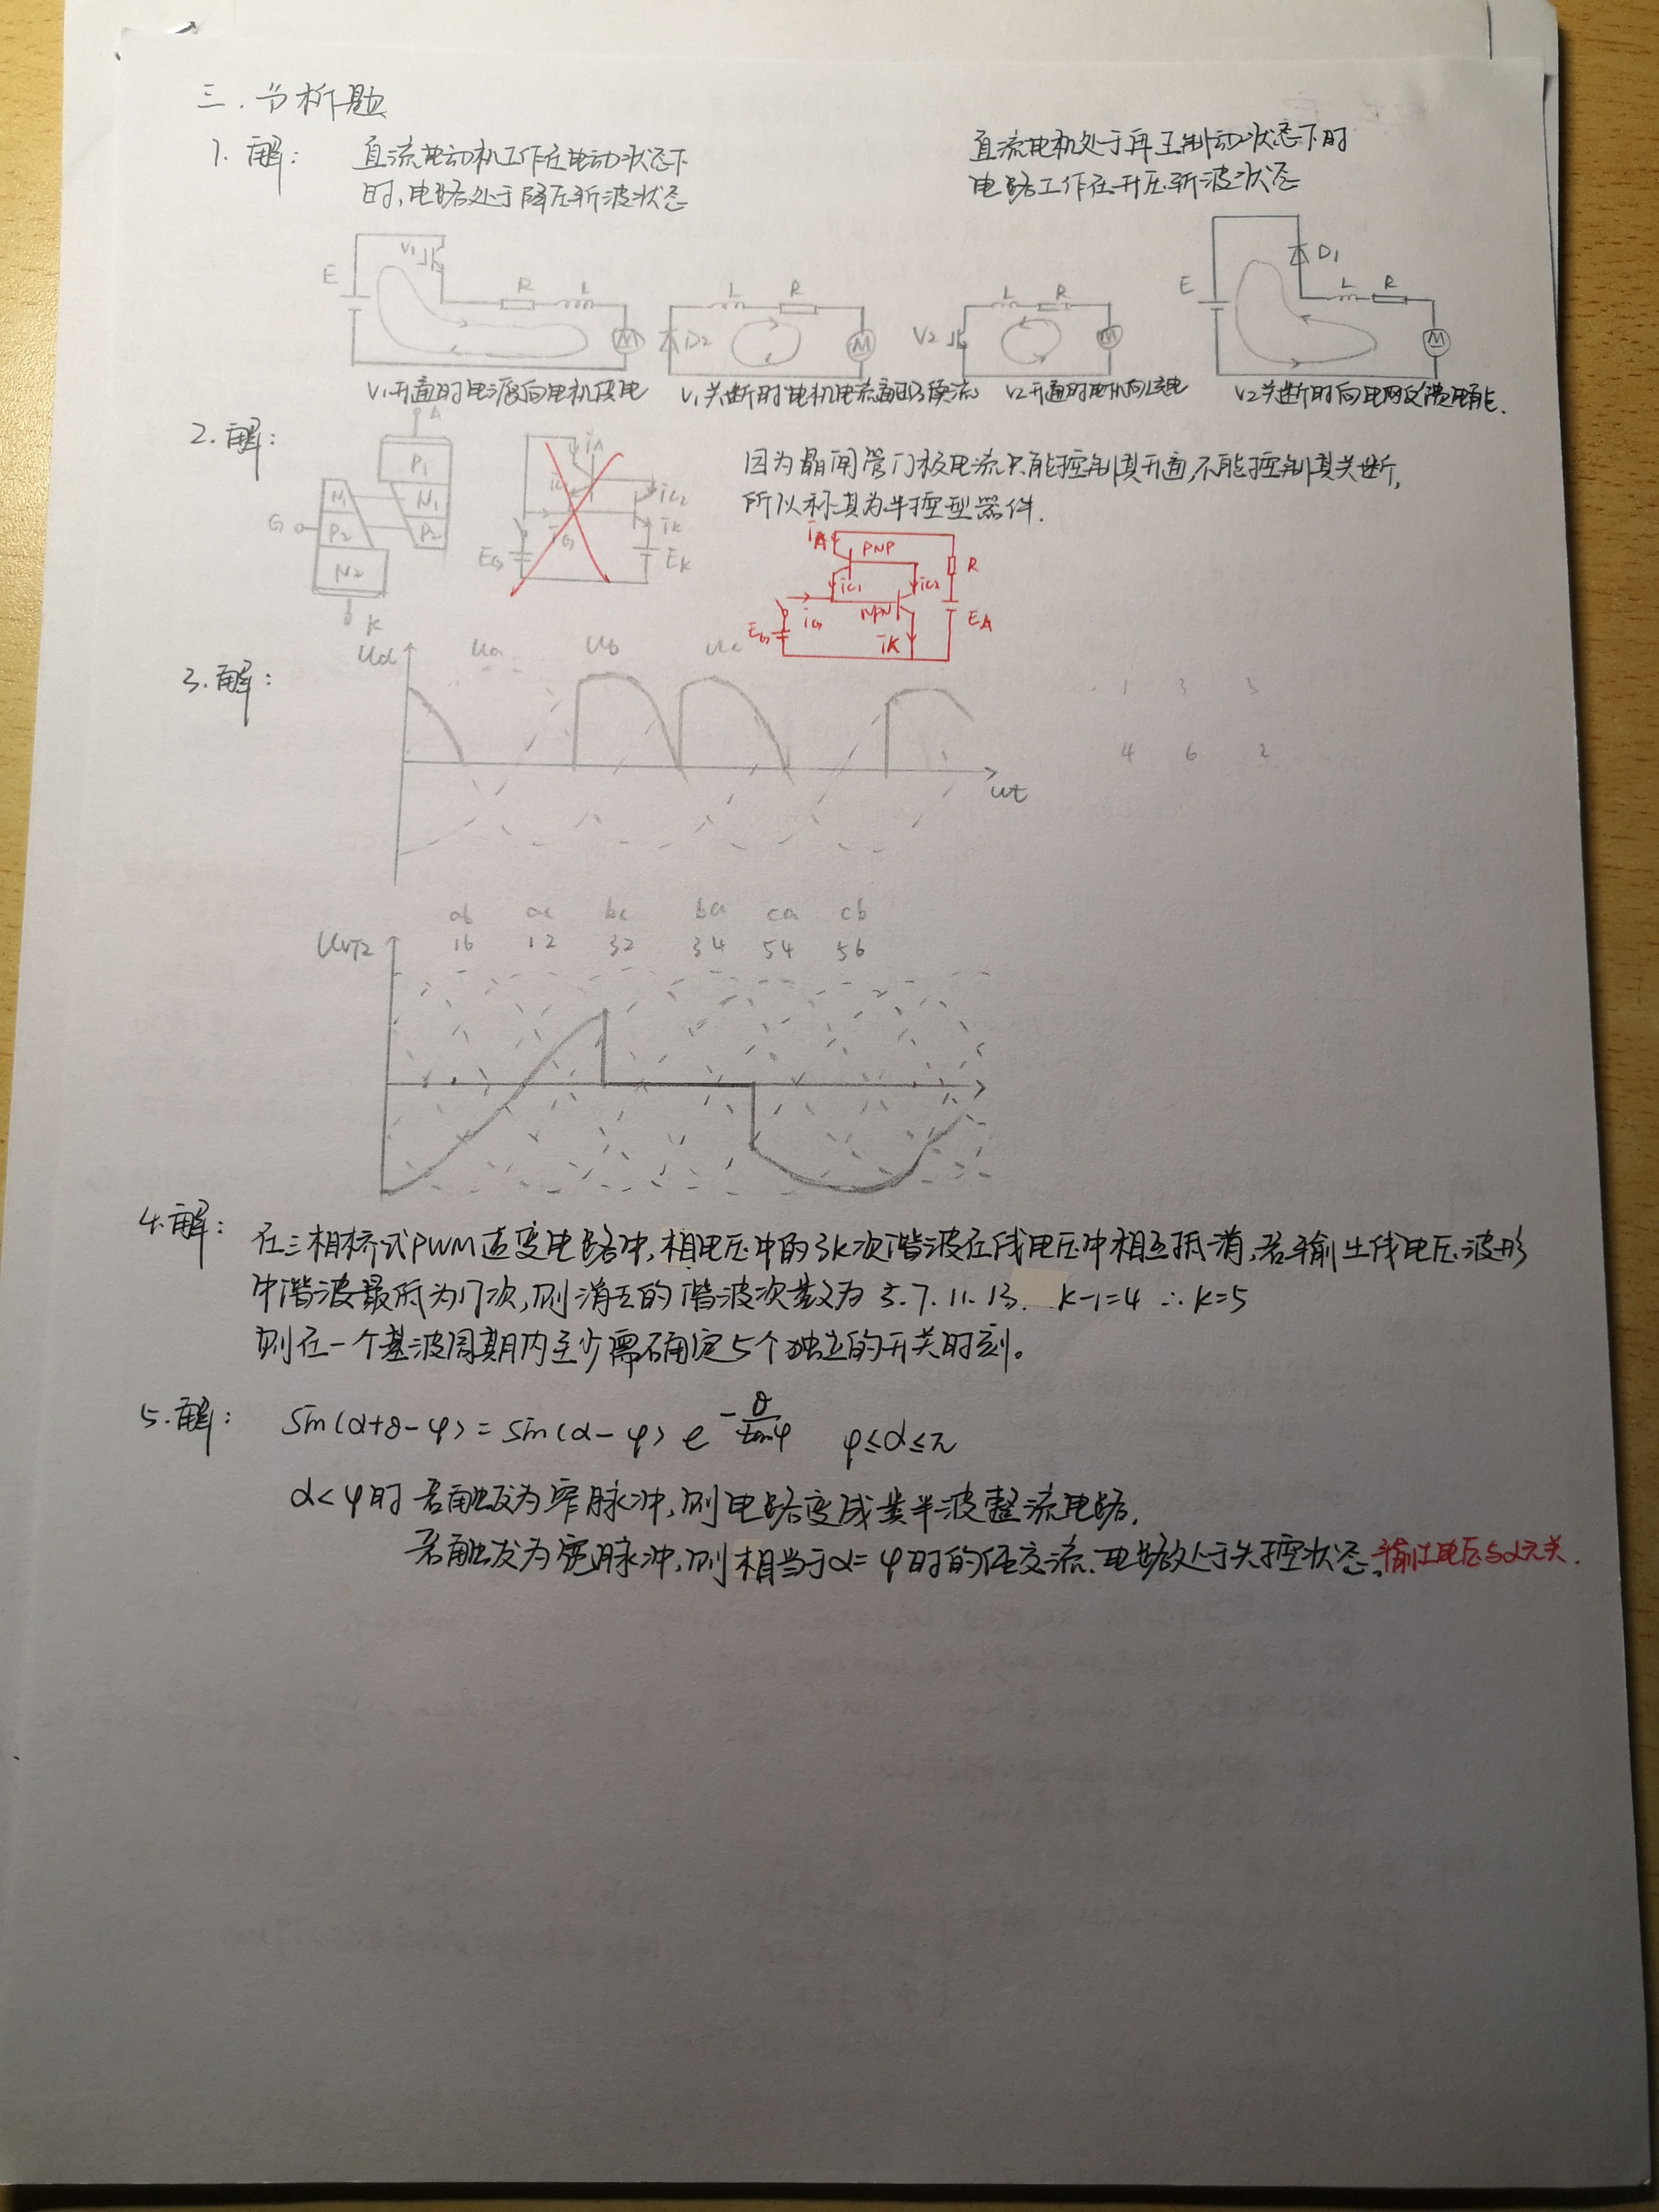 三.分析题
1.解:
直流电动机工作在电动状态下
时,电路处于降压斩波状态
直流电机处于再生制动状态下时
电路工作在升压斩波状态
E V1 R L M
D2 L R M
V2 L R M
E D1 L R M
V1开通时电源向电机供电
V1关断时电机电流通过D2续流
V2关断时向电网反馈电能.
2.解:
A
P1
N1 N1
G P2 P2
N2
K
iA
ic1 ic2
iG iK
EG EK
因为晶闸管门极电流只能控制其开通,不能控制其关断,
所以称其为半控型器件.
iA PNP R
ic1 ic2
iG NPN EA
EG iK
3.解:
Ud ua ub uc
ωt
1 3 5
4 6 2
ab ac bc ba ca cb
UVT2 16 12 32 34 54 56
4.解:
在三相桥式PWM逆变电路中,相电压中的3k次谐波在线电压中相互抵消,若输出线电压波形
中谐波最低为17次,则消去的谐波次数为 5.7.11.13. k-1=4 ∴k=5
则在一个基波周期内至少需确定5个独立的开关时刻。
5.解: Sin(α+θ-φ)=Sin(α-φ) e^{-θ/tanφ} φ≤α≤π
α<φ时 若触发为窄脉冲,则电路变成类半波整流电路.
若触发为宽脉冲,则相当于α=φ时的任交流.电路处于失控状态,输出电压与α无关.